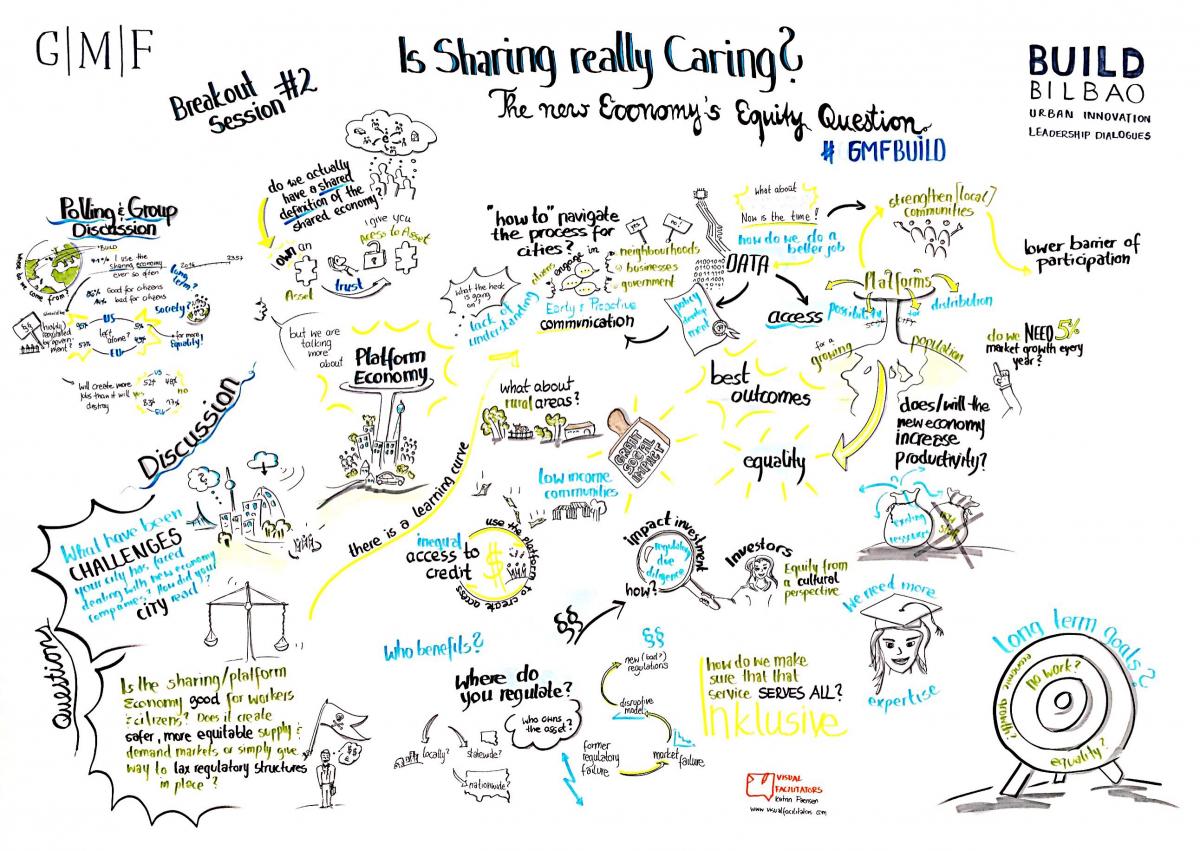 G|M|F
Is Sharing really Caring?
The new Economy's Equity Question.
# GMFBUILD
BUILD
BILBAO
URBAN INNOVATION
LEADERSHIP DIALOGUES
Breakout
Session #2
Polling & Group
Discussion
BUILD
I use the
sharing economy
ever so often
2016
long
term?
Good for citizens
bad for citizens
Society?
US
EU
left
alone?
for more
Equality!
will create more
jobs than it will
destroy
yes
no
US
52%
48%
83%
17%
EU
do we actually
have a shared
definition of the
shared economy?
I give you
Access to Asset
own an
Asset
trust
but we are
talking
more
about
Platform
Economy
"how to" navigate
the process for
cities?
yes!
no!
engage in
neighbourhoods
businesses
government
what the heck
is going
on?
lack of
understanding
Early & Proactive
communication
policy
develop
ment
what about
Now is the time!
how do we do a
better job
DATA
access
strengthen [local]
communities
lower barier of
participation
Platforms
possibility
for
distribution
for a
growing
population
do we NEED 5%
market growth every
year?
best
outcomes
equality
does/will the
new economy
increase
productivity?
existing
ressources
what about
rural areas?
GRANT
SOCIAL
IMPACT
low income
communities
there is a learning curve
inequal
access to
credit
use the platform to create access
$
impact investment
regulatory
due
diligence
how?
Investors
Equity from
a cultural
perspective
we need more
expertise
Discussion
What have been
CHALLENGES
your city has faced
dealing with new economy
companies? How did your
CITY react?
Question
Is the sharing/platform
Economy good for workers
& citizens? Does it create
safer, more equitable supply &
demand markets or simply give
way to lax regulatory structures
in place?
Who benefits?
Where do
you regulate?
who owns
the asset?
locally?
statewide?
nationwide?
§§
§§
new (bad?)
regulations
disruptive
model
former
regulatory
failure
market
failure
how do we make
sure that that
service SERVES ALL?
Inklusive
VISUAL
FACILITATORS
www.visualfacilitators.com
long term goals?
economic growth?
no work?
equality?